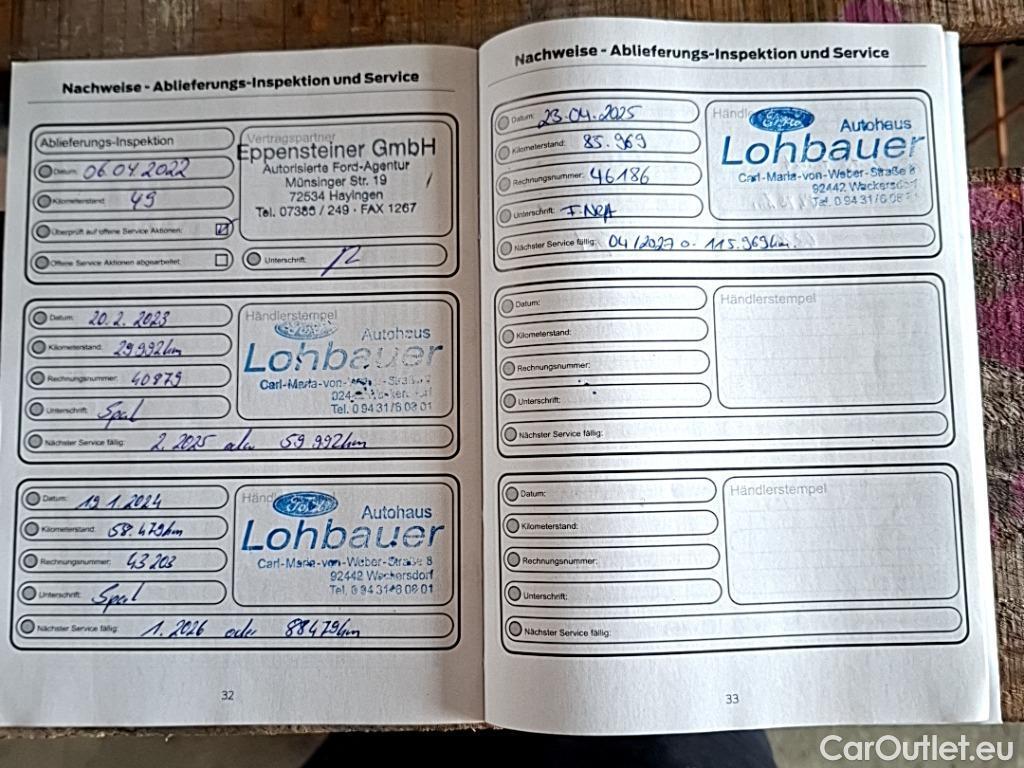 Nachweise - Ablieferungs-Inspektion und Service
Ablieferungs-Inspektion
Datum: 06.04.2022
Kilometerstand: 49
Überprüft auf offene Service Aktionen:
Offene Service Aktionen abgearbeitet:
Vertragspartner
Eppensteiner GmbH
Autorisierte Ford-Agentur
Münsinger Str. 19
72534 Hayingen
Tel. 07386 / 249 · FAX 1267
Unterschrift:
Datum: 20.2.2023
Kilometerstand: 29992km
Rechnungsnummer: 40879
Unterschrift:
Händlerstempel
Autohaus
Lohbauer
Carl-Maria-von-
Tel. 0 94 31/6 08 01
Nächster Service fällig: 2.2025 oder 59.992km
Datum: 19.1.2024
Kilometerstand: 58.479km
Rechnungsnummer: 43203
Unterschrift:
Ford
Autohaus
Lohbauer
Carl-Maria-von-Weber-Straße 8
92442 Wackersdorf
Tel. 0 94 31/6 08 01
Nächster Service fällig: 1.2026 oder 88479km
32
Nachweise - Ablieferungs-Inspektion und Service
Datum: 23.04.2025
Kilometerstand: 85.969
Rechnungsnummer: 46186
Unterschrift:
Ford
Autohaus
Lohbauer
Carl-Maria-von-Weber-Straße 8
92442 Wackersdorf
Nächster Service fällig: 04/2027 o. 115.969km
Datum:
Kilometerstand:
Rechnungsnummer:
Unterschrift:
Händlerstempel
Nächster Service fällig:
Datum:
Kilometerstand:
Rechnungsnummer:
Unterschrift:
Händlerstempel
Nächster Service fällig:
33
CarOutlet.eu